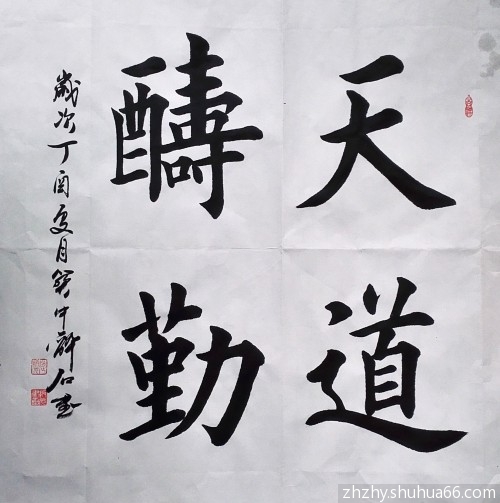 天道
醻勤
歲次丁酉夏月
zhzhy.shuhua66.com